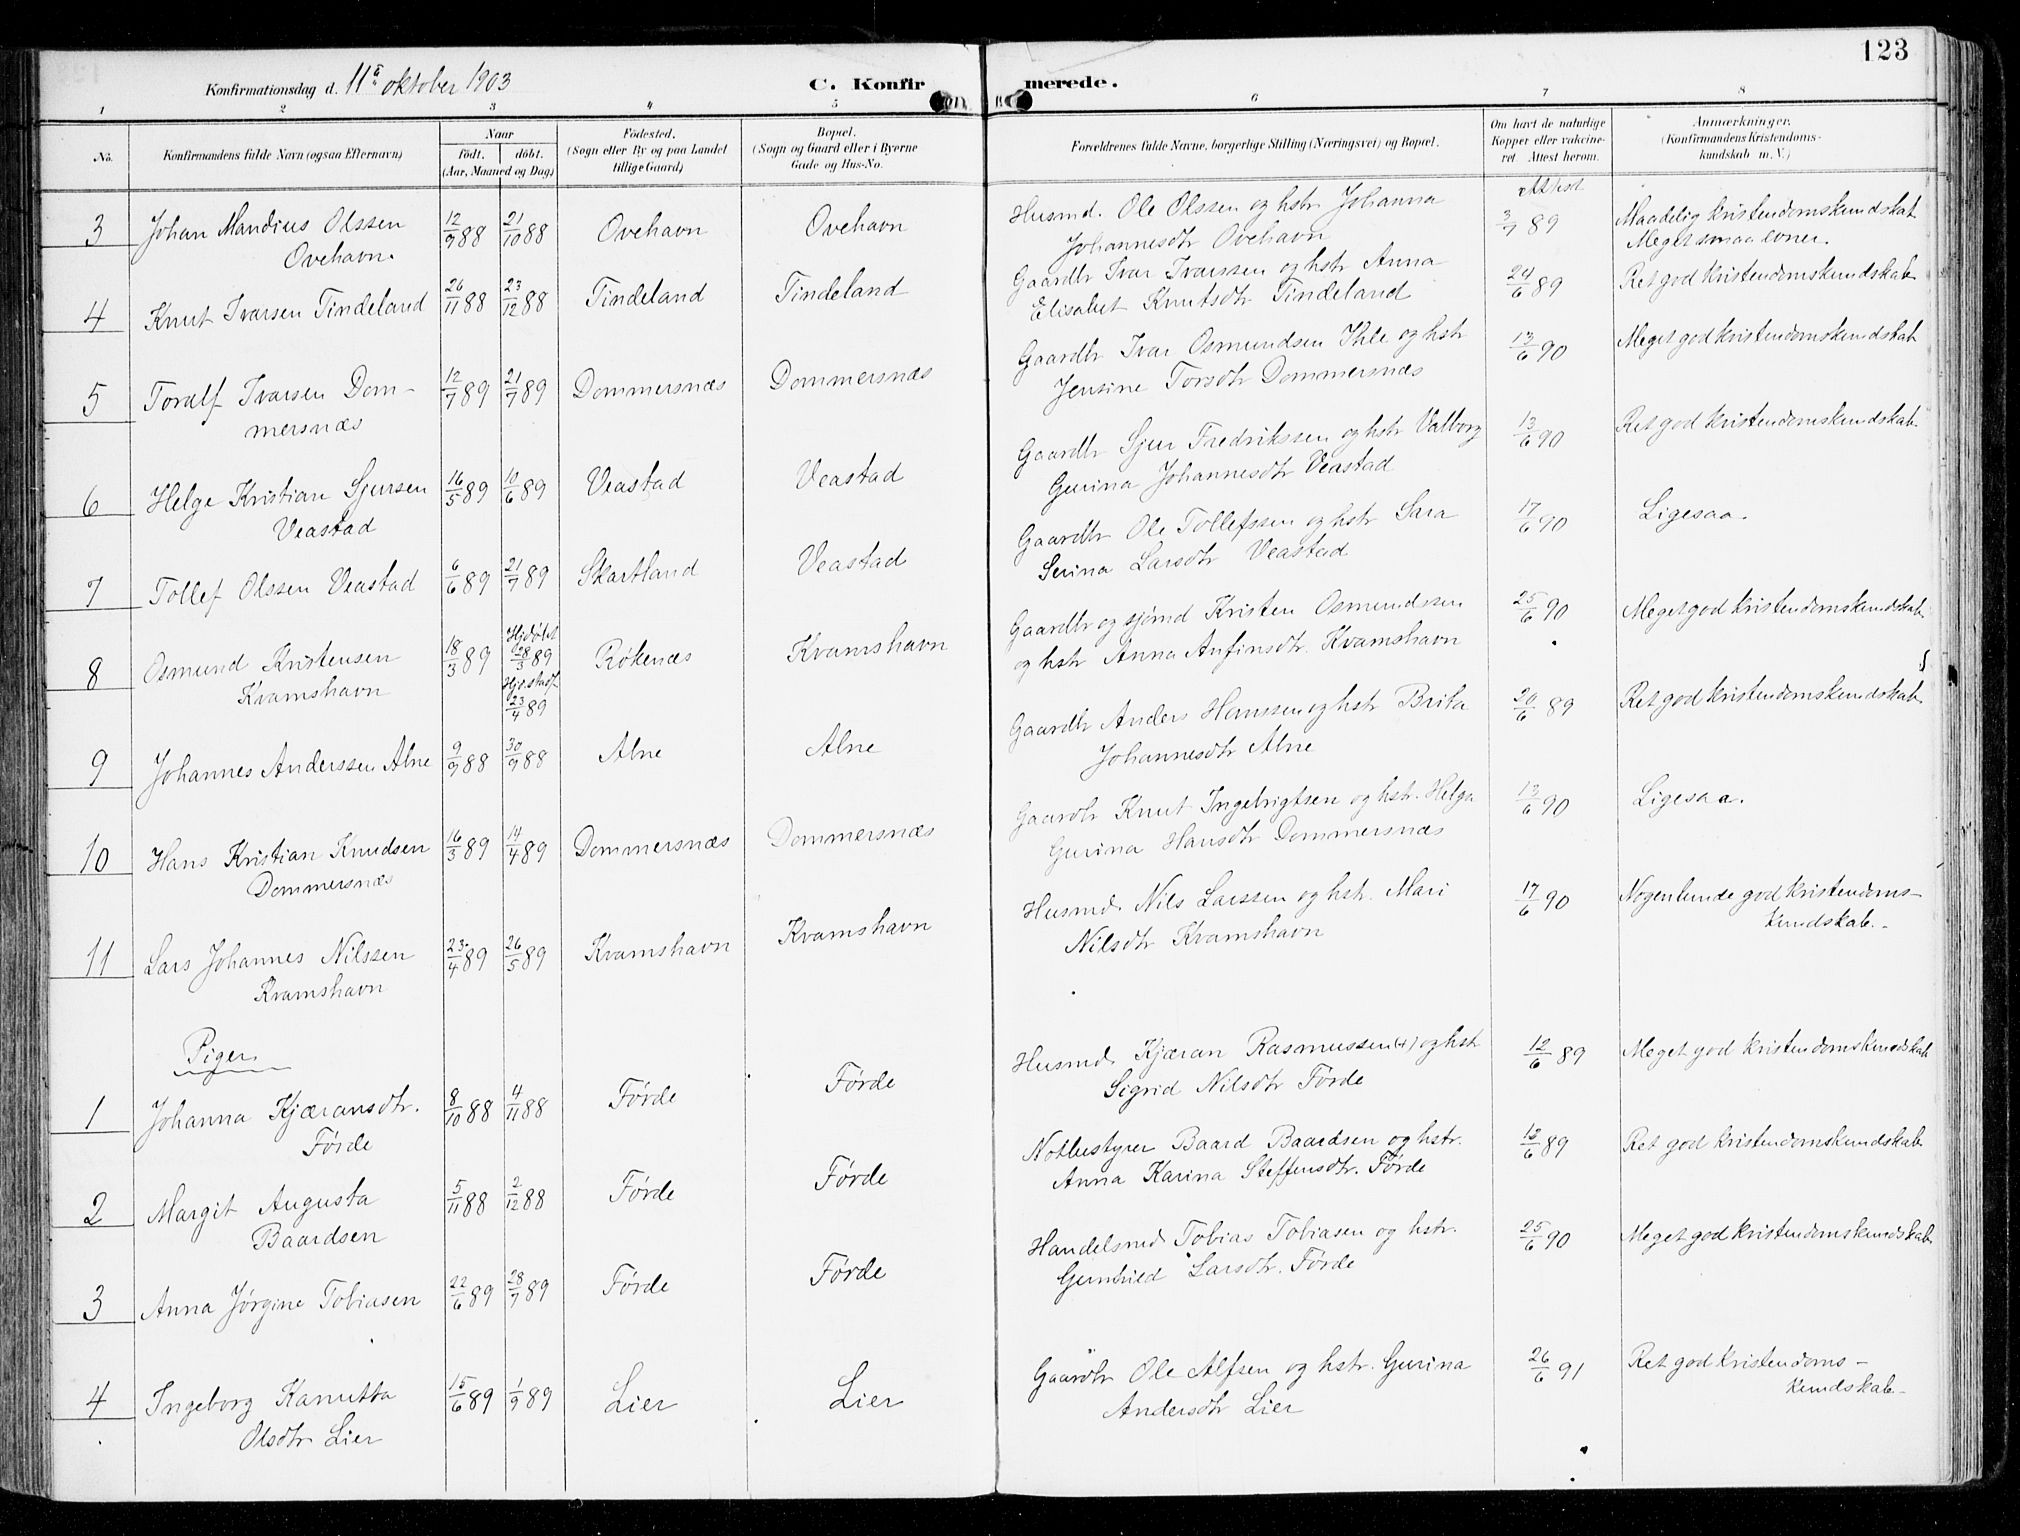 123
Konfirmationsdag d. 11te oktober 1903
C. Konfirmerede.
1 2 3 4 5 6 7 8
No. Konfirmandens fulde Navn (ogsaa Efternavn) Naar födt. döbt. (Aar, Maaned og Dag) Födested. (Sogn eller By og paa Landet tillige Gaard) Bopæl. (Sogn og Gaard eller i Byerne Gade og Hus-No. Forældrenes fulde Navne, borgerlige Stilling (Næringsvei) og Bopæl. Om havt de naturlige Kopper eller vakcineret. Attest herom. Anmærkninger. (Konfirmandens Kristendomskundskab m. V.)
Attest
3 Johan Mandius Olssen 12/9 88 21/10 88 Ovehavn Ovehavn Husmd. Ole Olssen og hstr Johanna 3/7 89 Maadelig kristendomskundskab
Ovehavn. Johannesdtr Ovehavn Meget smaa evner.
4 Knut Ivarsen Tindeland 26/11 88 23/12 88 Tindeland Tindeland Gaardbr Ivar Ivarssen og hstr Anna 24/6 89 Ret god kristendomskundskab
Elisabet Knutsdtr Tindeland
5 Toralf Ivarsen Dom- 12/7 89 21/7 89 Dommersnæs Dommersnæs Gaardbr Ivar Osmundsen Ihle og hstr 13/6 90 Meget god kristendomskundskab
mersnæs Jensine Torsdtr Dommersnæs
6 Helge Kristian Sjursen 16/5 89 10/6 89 Veastad Veastad Gaardbr Sjur Fredrikssen og hstr Valborg 13/6 90 Ret god kristendomskundskab.
Veastad Gurina Johannesdtr Veastad
7 Tollef Olssen Veastad 6/6 89 21/7 89 Skartland Veastad Gaardbr Ole Tollefssen og hstr Sara 17/6 90 Ligesaa.
Serina Larsdtr Veastad
8 Osmund Kristensen 18/3 89 Hjdøbt 28/3 89 Røkenæs Kvamshavn Gaardbr og sjømd Kristen Osmundssen 25/6 90 Meget god kristendomskundskab
Kvamshavn Hjd. stadf. 23/4 89 og hstr Anna Anfinsdtr. Kvamshavn
9 Johannes Anderssen Alne 9/9 88 30/9 88 Alne Alne Gaardbr Anders Hanssen og hstr Brita 20/6 89 Ret god kristendomskundskab
Johannesdtr Alne
10 Hans Kristian Knudsen 16/3 89 14/4 89 Dommersnæs Dommersnæs Gaardbr Knut Ingebrigtsen og hstr. Helga 13/6 90 Ligesaa.
Dommersnæs Gurina Hansdtr Dommersnæs
11 Lars Johannes Nilssen 23/4 89 26/5 89 Kvamshavn Kvamshavn Husmd. Nils Larssen og hstr. Mari 17/6 90 Nogenlunde god kristendoms-
Kvamshavn Nilsdtr Kvamshavn kundskab.
Piger
1 Johanna Kjæransdtr. 8/10 88 4/11 88 Førde Førde Husmd Kjæran Rasmussen (+) og hstr 12/6 89 Meget god kristendomskundskab
Førde Sigrid Nilsdtr Førde
2 Margit Augusta 5/11 88 2/12 88 Førde Førde Notbestyrer Baard Baardsen og hstr. 12/6 89 Ret god kristendomskundskab
Baardsen Anna Karina Steffensdtr. Førde
3 Anna Jørgine Tobiasen 22/6 89 28/7 89 Førde Førde Handelsmd Tobias Tobiasen og hstr. 25/6 90 Meget god kristendomskundskab
Gunhild Larsdtr. Førde
4 Ingeborg Kanutta 15/6 89 1/9 89 Lier Lier Gaardbr Ole Alfsen og hstr. Gurina 26/6 91 Ret god kristendoms-
Olsdtr Lier Andersdtr Lier kundskab